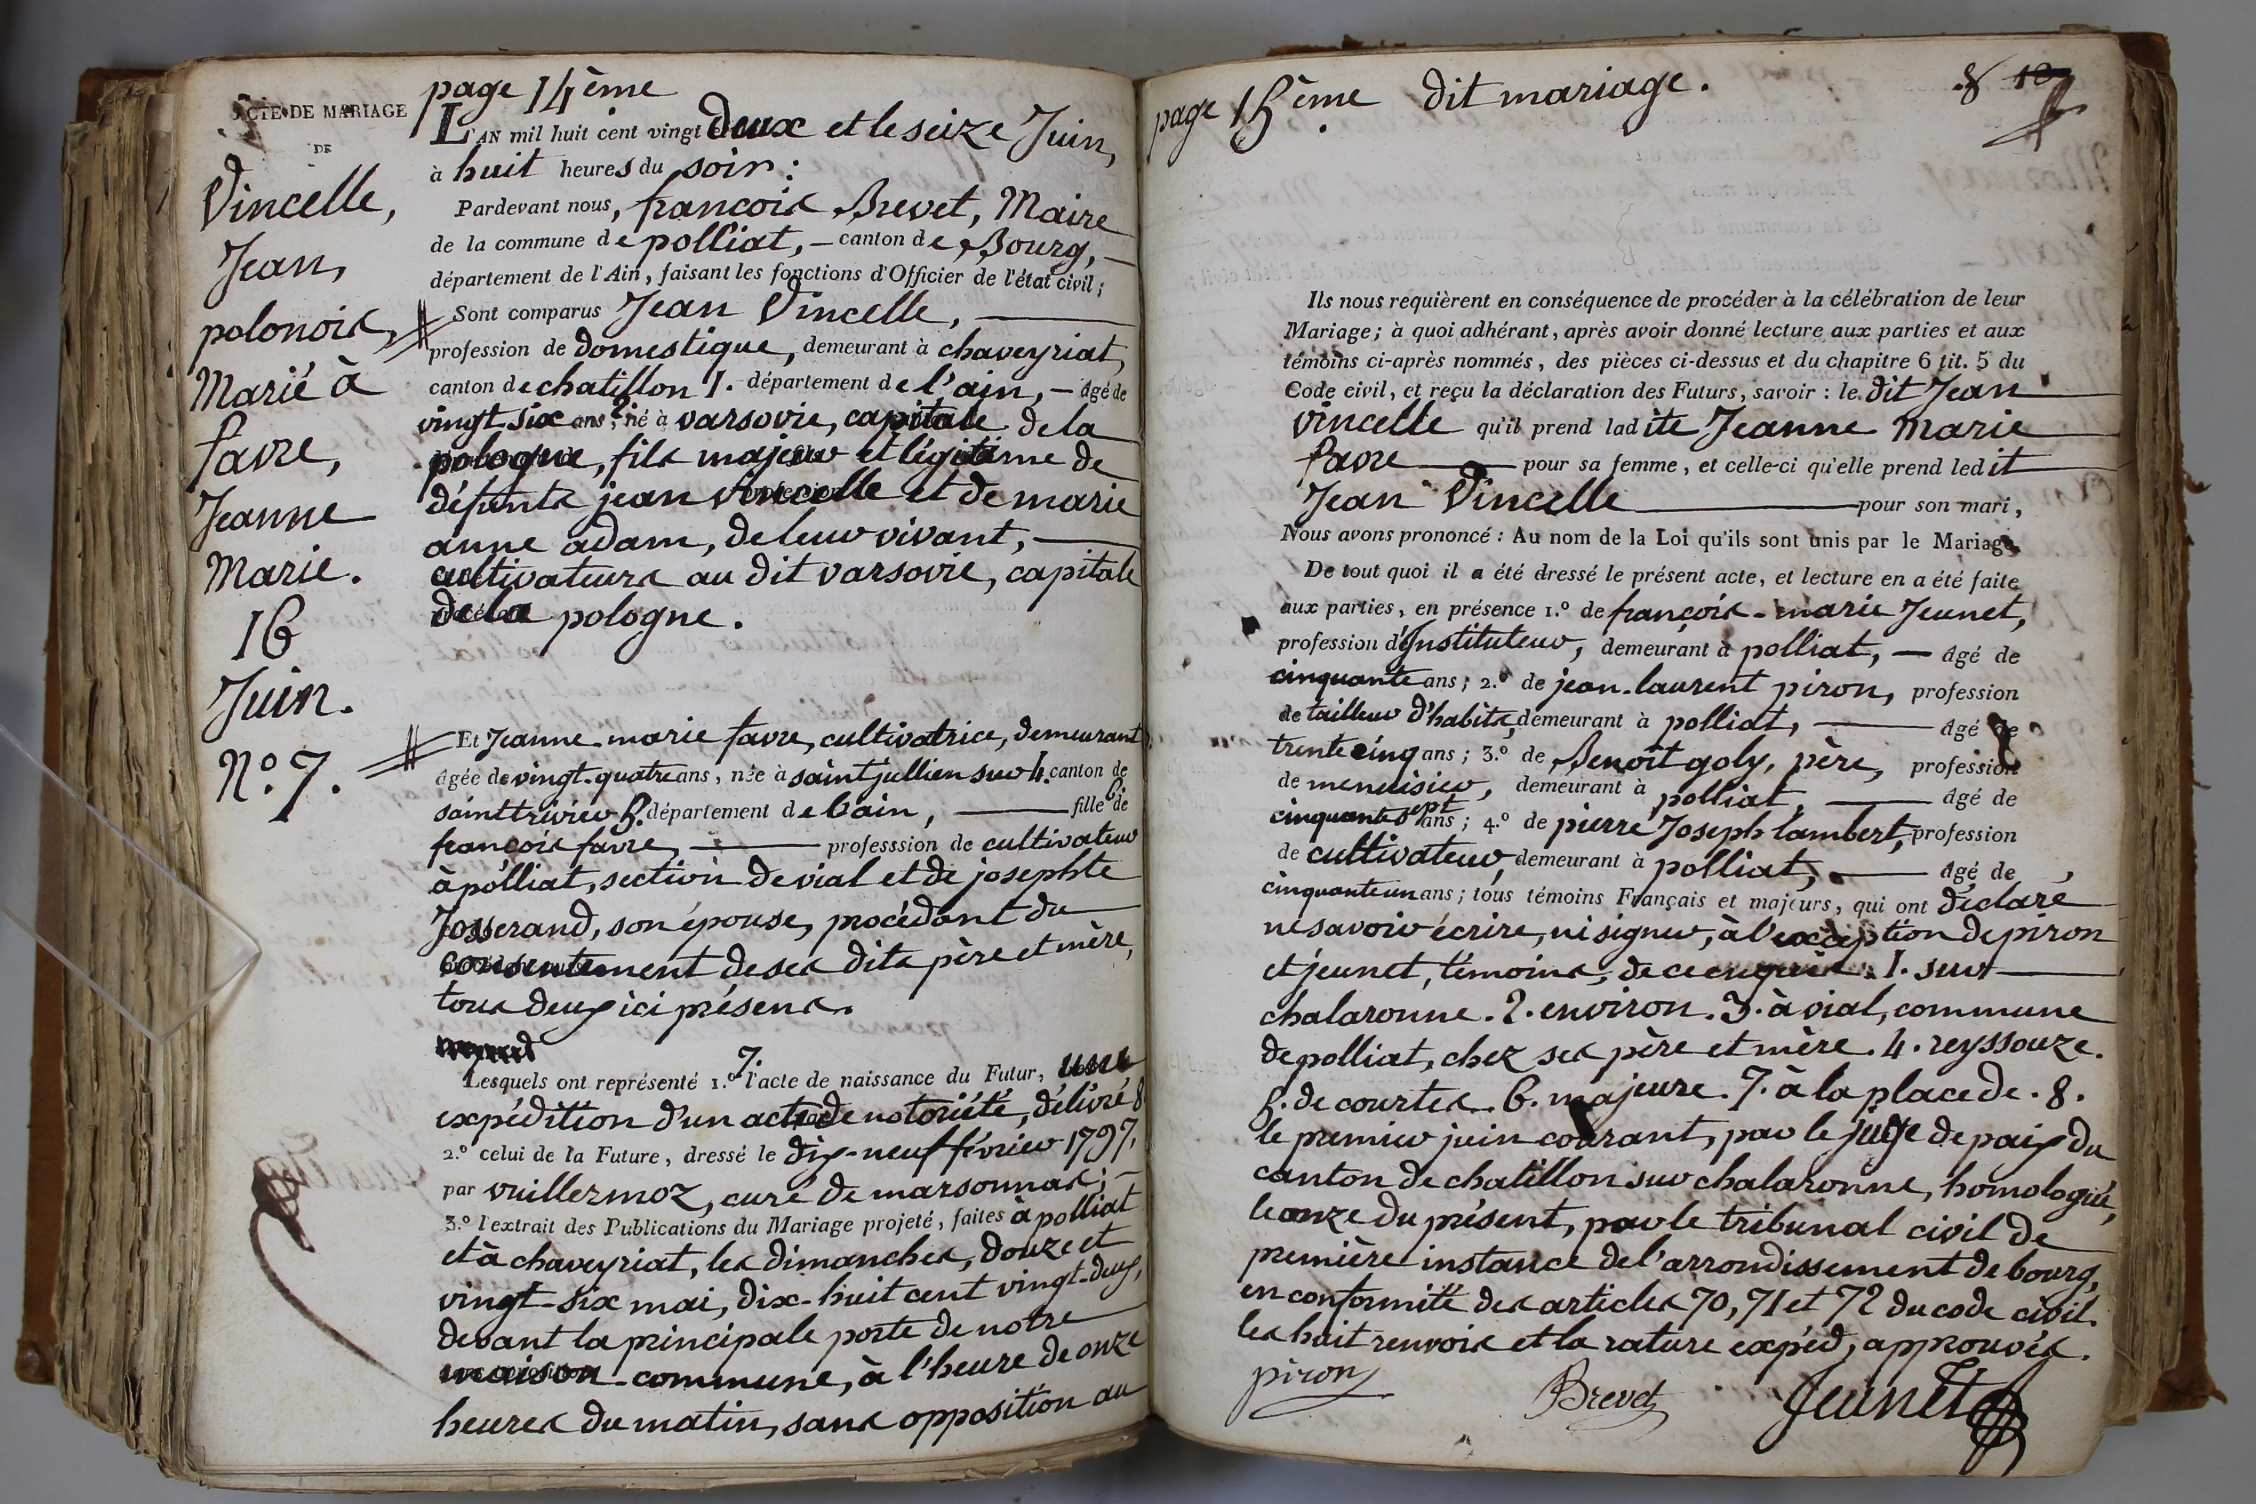 ACTE DE MARIAGE
DE
Vincelle,
Jean,
polonois,
Marié à
favre,
Jeanne
Marie.
16
Juin.
N.º 7.
page 14ème
L'AN mil huit cent vingt deux et le seize Juin,
à huit heures du soir :
Pardevant nous, francois Brevet, Maire
de la commune de polliat, – canton de Bourg, –
département de l'Ain, faisant les fonctions d'Officier de l'état civil ;
Sont comparus Jean Vincelle, —
profession de domestique, demeurant à chaveyriat,
canton de chatillon 1. département de l'ain, – âgé de
vingt-six ans 2, né à varsovie, capitale de la
pologne, fils majeur et légitime de
défunts jean vincelle et de marie
anne adam, de leur vivant, —
cultivateurs au dit varsovie, capitale
de la pologne.
Et Jeanne-marie favre, cultivatrice, demeurant 3.
âgée de vingt-quatre ans, née à saint jullien sur 4. canton de
saint trivier 5. département de l'ain, — fille 6. de
françois favre, — professsion de cultivateur
à polliat, section de vial et de josephte
Josserand, son épouse, procédant du
consentement de ses dits père et mère,
tous deux ici présens.
Lesquels ont représenté 1.º 7. l'acte de naissance du Futur, une
expédition d'un acte de notoriété, délivré 8
2.º celui de la Future, dressé le dix-neuf février 1797,
par vuillermoz, curé de marsonnas ; –
3.º l'extrait des Publications du Mariage projeté, faites à polliat
et à chaveyriat, les dimanches, douze et
vingt-six mai, dix-huit cent vingt-deux,
devant la principale porte de notre
maison-commune, à l'heure de onze
heures du matin, sans opposition au
page 15ème dit mariage.
8
Ils nous requièrent en conséquence de procéder à la célébration de leur
Mariage ; à quoi adhérant, après avoir donné lecture aux parties et aux
témoins ci-après nommés, des pièces ci-dessus et du chapitre 6 tit. 5 du
Code civil, et reçu la déclaration des Futurs, savoir : le dit Jean
vincelle qu'il prend ladite Jeanne Marie
favre — pour sa femme, et celle-ci qu'elle prend ledit
Jean Vincelle — pour son mari,
Nous avons prononcé : Au nom de la Loi qu'ils sont unis par le Mariage.
De tout quoi il a été dressé le présent acte, et lecture en a été faite
aux parties, en présence 1.º de françois-marie Jeunet,
profession d'Instituteur, demeurant à polliat, — âgé de
cinquante ans ; 2.º de jean-laurent piron, profession
de tailleur d'habits, demeurant à polliat, — âgé de
trente cinq ans ; 3.º de Benoit goly, père, profession
de menuisier, demeurant à polliat, — âgé de
cinquante sept ans ; 4.º de pierre Joseph lambert, profession
de cultivateur, demeurant à polliat, — âgé de
cinquante un ans ; tous témoins Français et majeurs, qui ont déclaré
ne savoir écrire, ni signer, à l'exception de piron
et jeunet, témoins, de ce enquis. 1. sur —
chalaronne. 2. environ. 3. à vial, commune
de polliat, chez ses père et mère. 4. reyssouze.
5. de courtes. 6. majeure. 7. à la place de. 8.
le premier juin courant, par le juge de paix du
canton de chatillon sur chalaronne, homologué,
le onze du présent, par le tribunal civil de
première instance de l'arrondissement de bourg,
en conformité des articles 70, 71 et 72 du code civil.
les huit renvois et la rature expéd, approuvés.
piron Brevet Jeunet